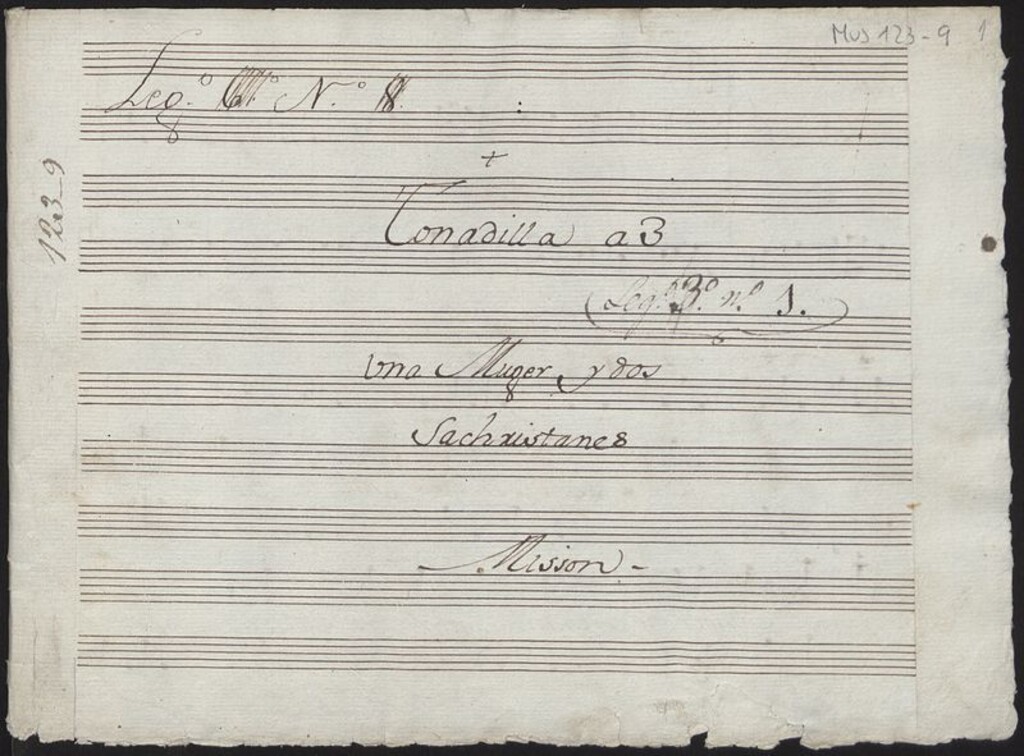 Mus 123-9 1
Leg.º N.º 8.
123-9
+
Tonadilla a 3
(Leg.º 3.º n.º 1.)
Una Muger, y dos
Sachristanes
- Misson -